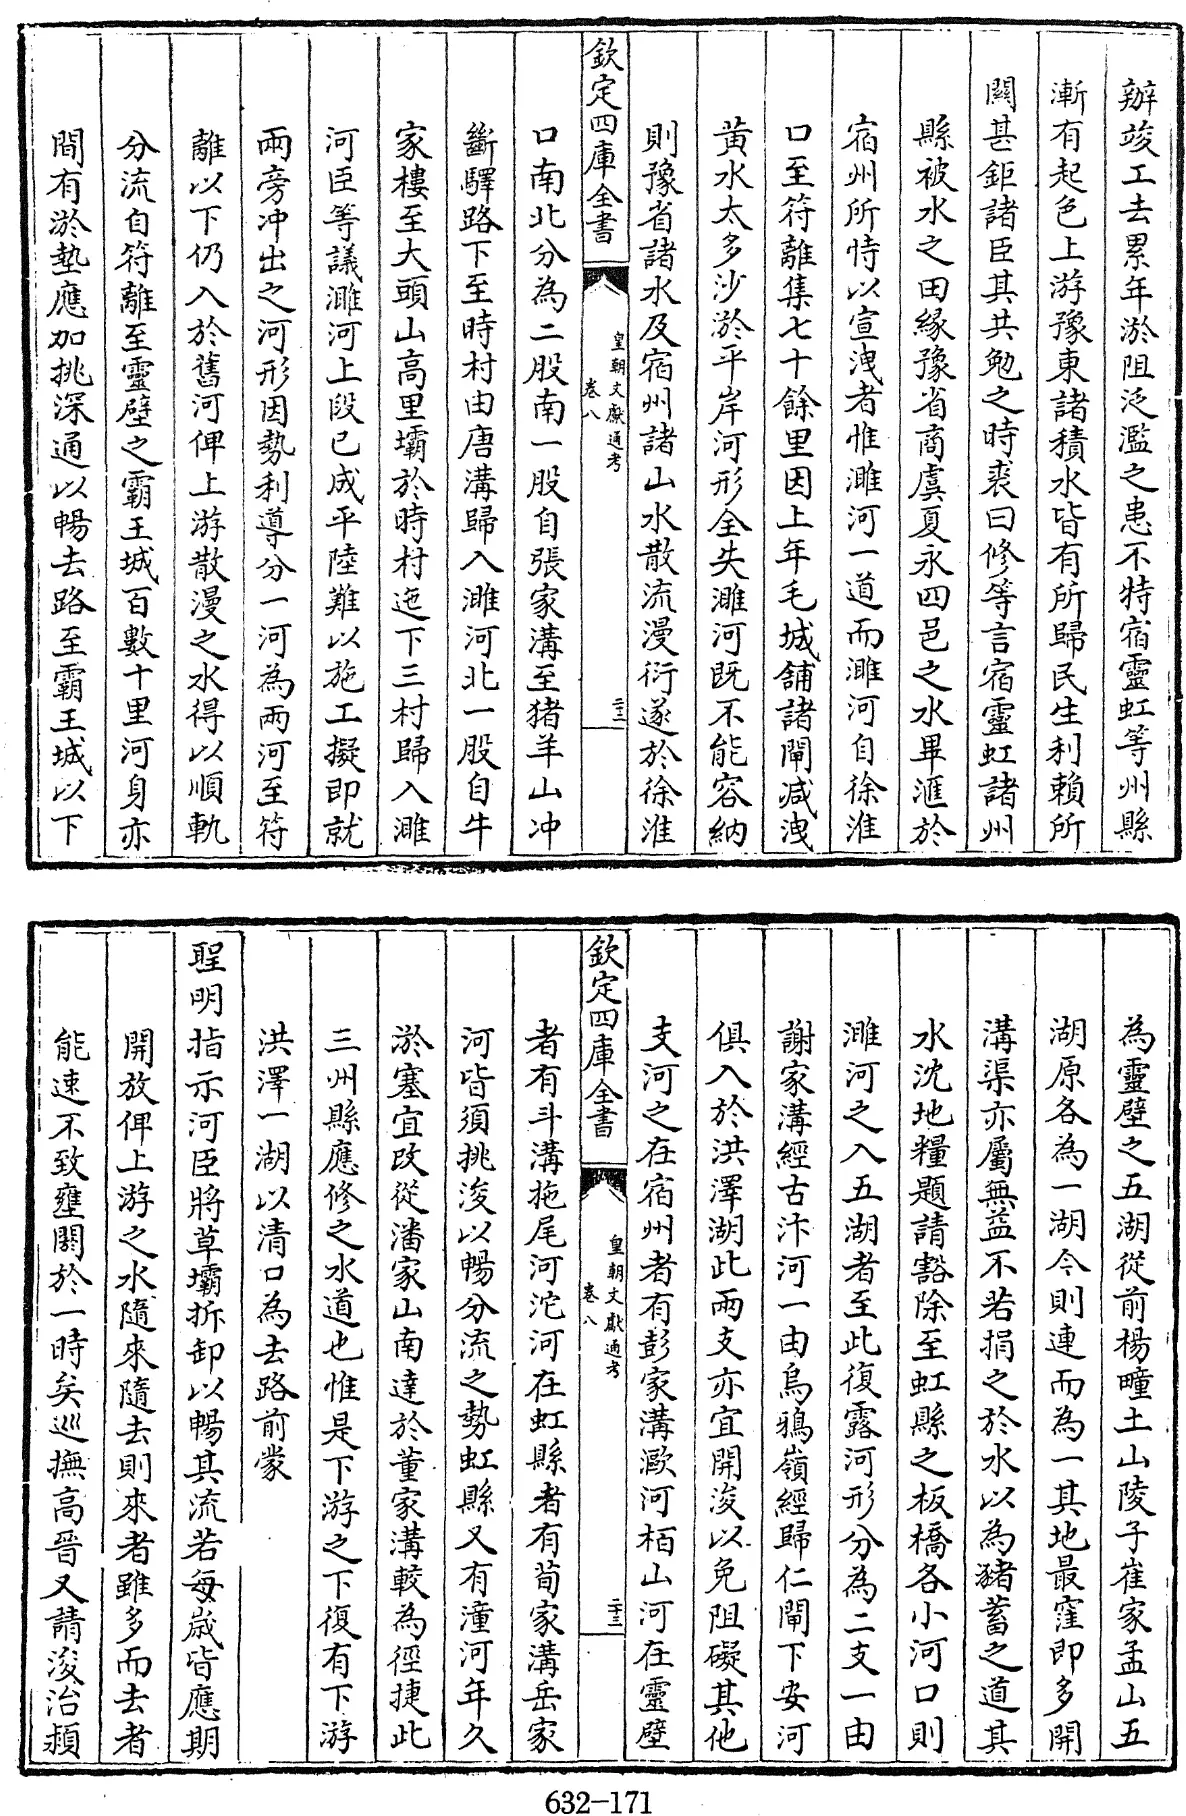 辦竣工去累年淤阻泛濫之患不特宿靈虹等州縣
漸有起色上游豫東諸積水皆有所歸民生利賴所
關甚鉅諸臣其共勉之時裘曰修等言宿靈虹諸州
縣被水之田緣豫省商虞夏永四邑之水畢滙於
宿州所恃以宣洩者惟濉河一道而濉河自徐淮
口至符離集七十餘里因上年毛城舖諸閘減洩
黄水太多沙淤平岸河形全失濉河既不能容納
則豫省諸水及宿州諸山水散流漫衍遂於徐淮
欽定四庫全書
皇朝文獻通考
卷八
二十三
口南北分為二股南一股自張家溝至猪羊山冲
斷驛路下至時村由唐溝歸入濉河北一股自牛
家樓至大頭山高里壩於時村迤下三村歸入濉
河臣等議濉河上段已成平陸難以施工擬即就
兩旁冲出之河形因勢利導分一河為兩河至符
離以下仍入於舊河俾上游散漫之水得以順軌
分流自符離至靈壁之霸王城百數十里河身亦
間有淤墊應加挑深通以暢去路至霸王城以下
為靈壁之五湖從前楊疃土山陵子崔家孟山五
湖原各為一湖今則連而為一其地最窪即多開
溝渠亦屬無益不若捐之於水以為豬蓄之道其
水沈地糧題請豁除至虹縣之板橋各小河口則
濉河之入五湖者至此復露河形分為二支一由
謝家溝經古汴河一由烏鴉嶺經歸仁閘下安河
俱入於洪澤湖此兩支亦宜開浚以免阻礙其他
支河之在宿州者有彭家溝澥河栢山河在靈壁
欽定四庫全書
皇朝文獻通考
卷八
二十三
者有斗溝拖尾河沱河在虹縣者有荀家溝岳家
河皆須挑浚以暢分流之勢虹縣又有潼河年久
淤塞宜改從潘家山南達於董家溝較為徑捷此
三州縣應修之水道也惟是下游之下復有下游
洪澤一湖以清口為去路前蒙
聖明指示河臣將草壩拆卸以暢其流若每歲皆應期
開放俾上游之水隨來隨去則來者雖多而去者
能速不致壅閼於一時矣巡撫高晉又請浚治潁
632-171